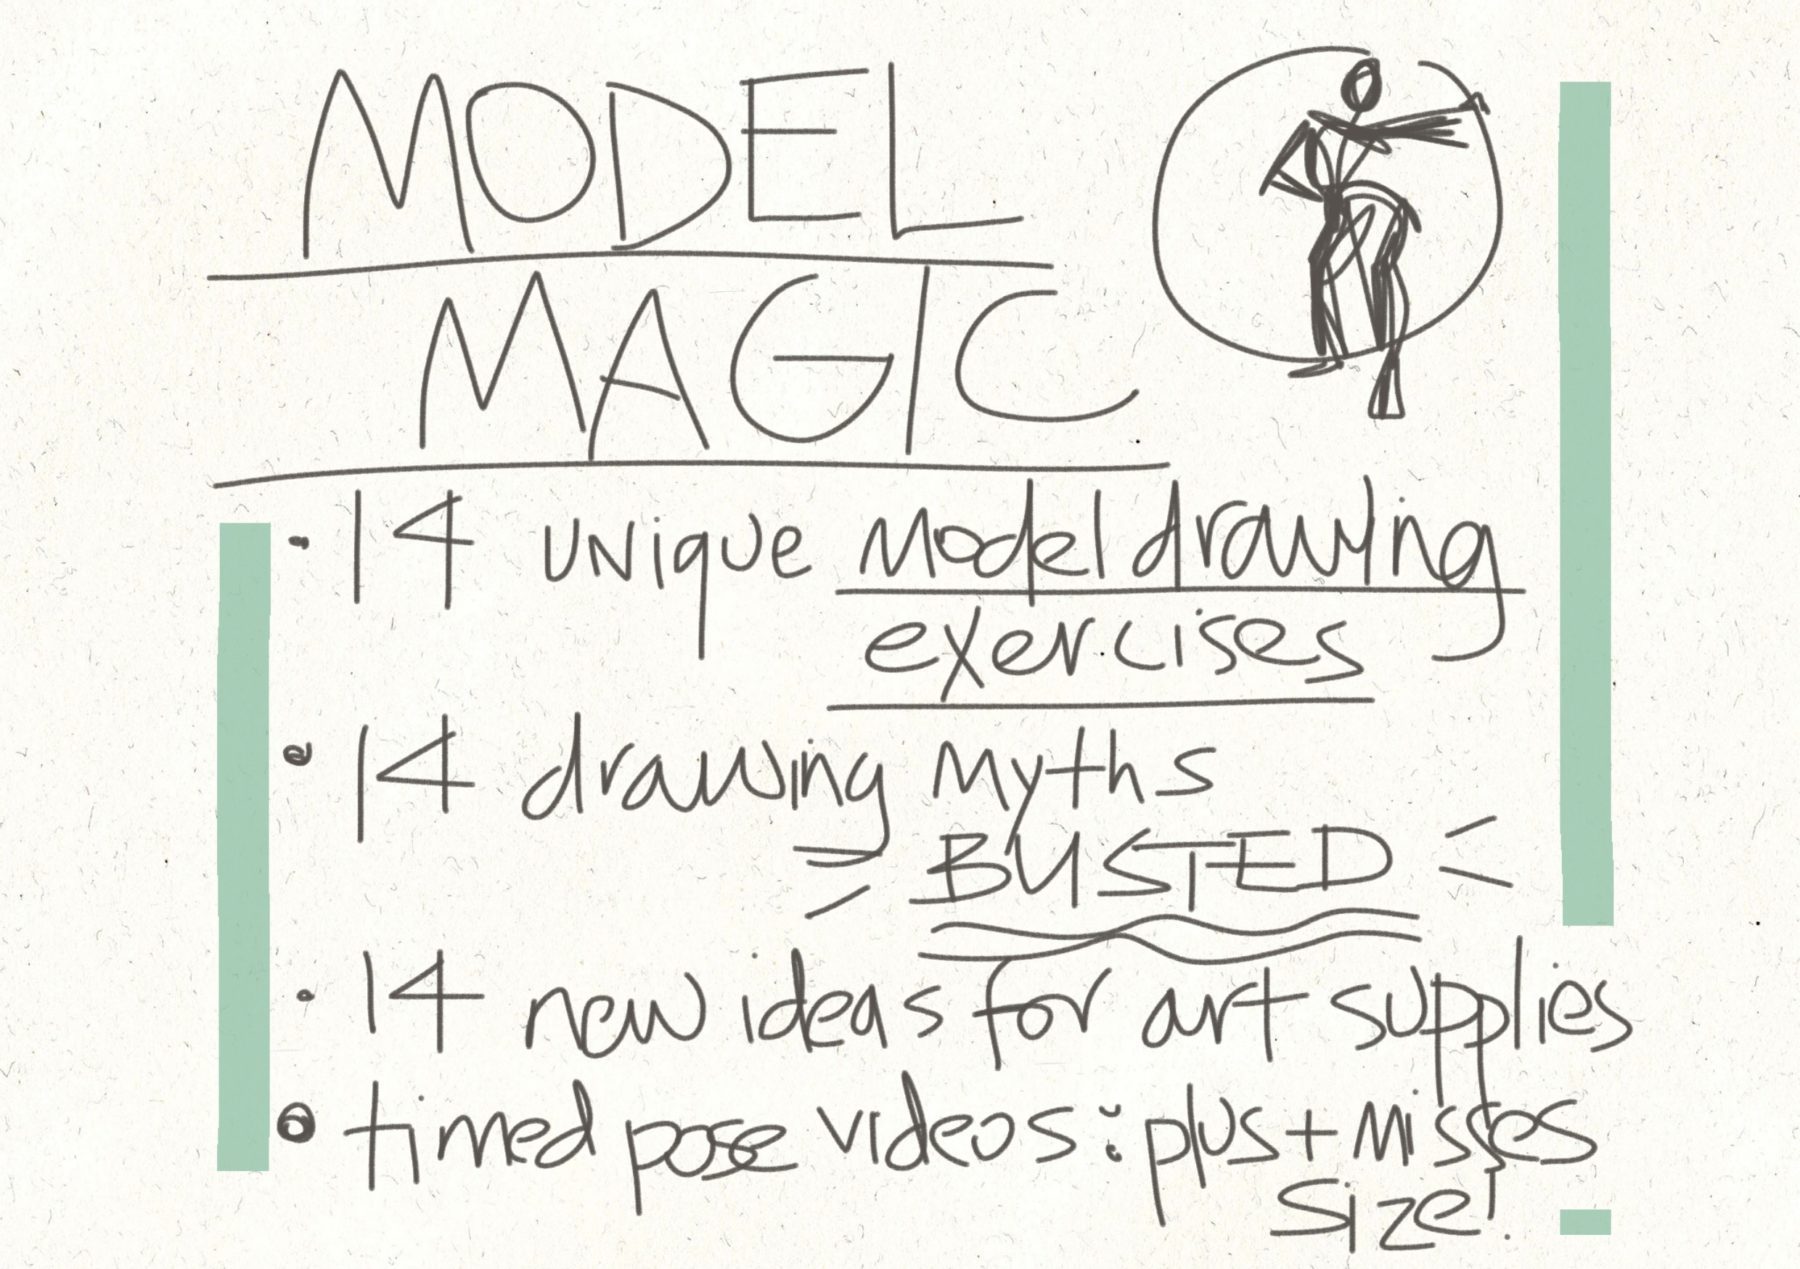 MODEL
MAGIC
• 14 unique model drawing
exercises
• 14 drawing myths
BUSTED
• 14 new ideas for art supplies
• timed pose videos: plus + misses
size!